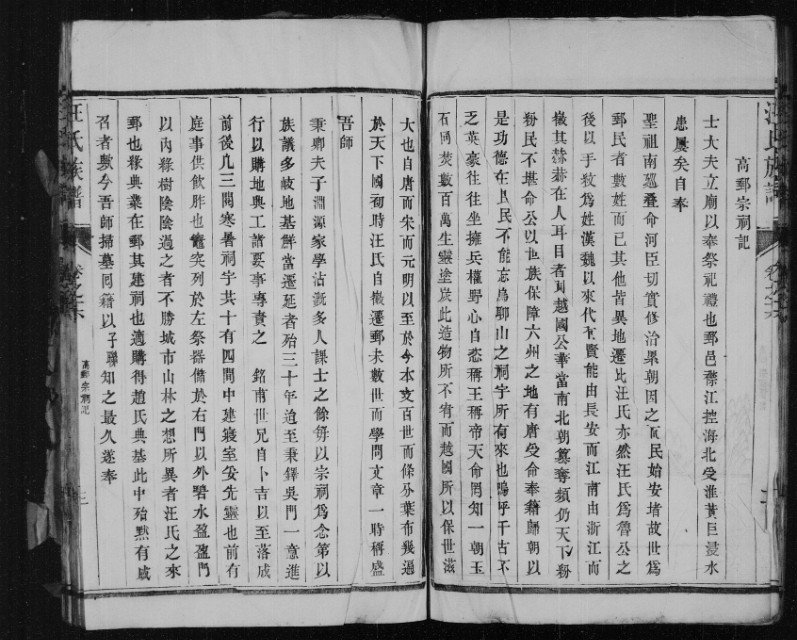 汪氏族譜
高郵宗祠記
士大夫立廟以奉祭祀禮也郵邑襟江控海北受淮黃巨浸水
患屢矣自奉
聖祖南巡叠命河臣切實修治累朝因之而民始安堵故世爲
郵民者數姓而已其他皆異地遷此汪氏亦然汪氏爲魯公之
後以手紋爲姓漢魏以來代有賢能由長安而江南由浙江而
徽其赫赫在人耳目者則越國公華當南北朝篡奪頻仍天下紛
紛民不堪命公以世族保障六州之地有唐受命奉籍歸朝以
是功德在民民不能忘烏聊山之祠宇所有來也嗚呼千古不
乏英豪往往坐擁兵權野心自恣稱王稱帝天命罔知一朝玉
石同焚數百萬生靈塗炭此造物所不宥而越國所以保世滋
大也自唐而宋而元明以至於今本支百世而條分葉布幾遍
於天下國初時汪氏自徽遷郵未數世而學問文章一時稱盛
吾師
秉卿夫子淵源家學沾漑多人課士之餘每以宗祠爲念第以
族議多歧地基鮮當遷延者殆三十年迨至秉鐸吳門一意進
行以購地興工諸要事專責之 銘甫世兄自卜吉以至落成
前後凡三閱寒暑祠宇共十有四間中建寢室妥先靈也前有
庭事供飲胙也竈突列於左祭器備於右門以外碧水盈盈門
以內綠樹陰陰過之者不勝城市山林之想所異者汪氏之來
郵也發典業在郵其建祠也適購得趙氏典基此中殆默有感
召者歟今吾師掃墓回籍以子聯知之最久遂奉
汪氏族譜
卷之
高郵宗祠記
三